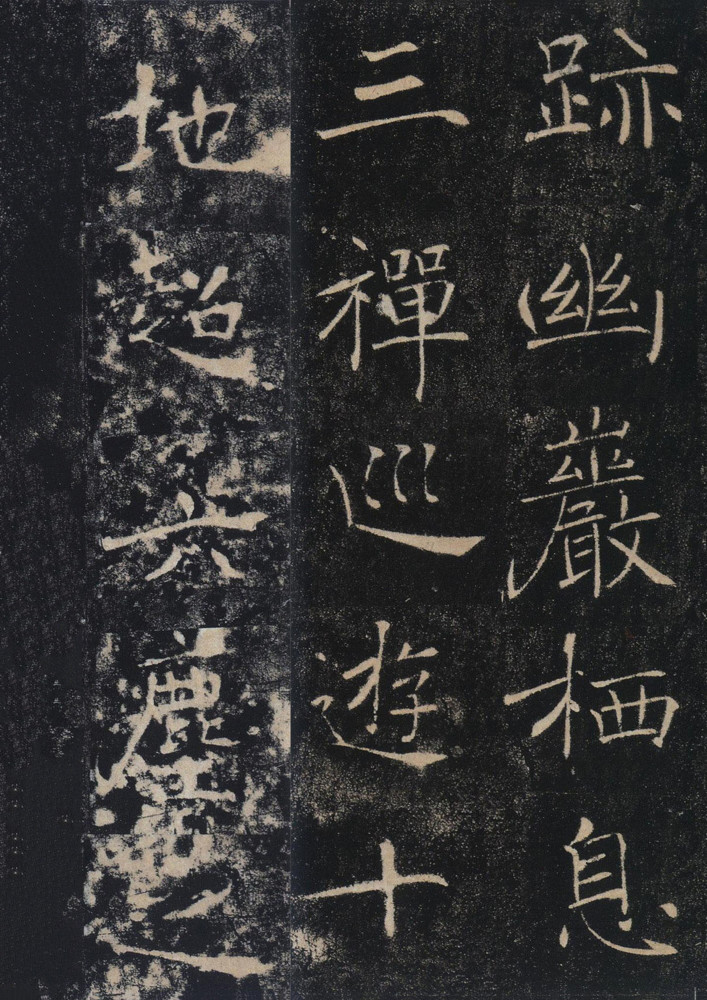 跡幽巖栖息
三禪巡遊十
地超六塵之